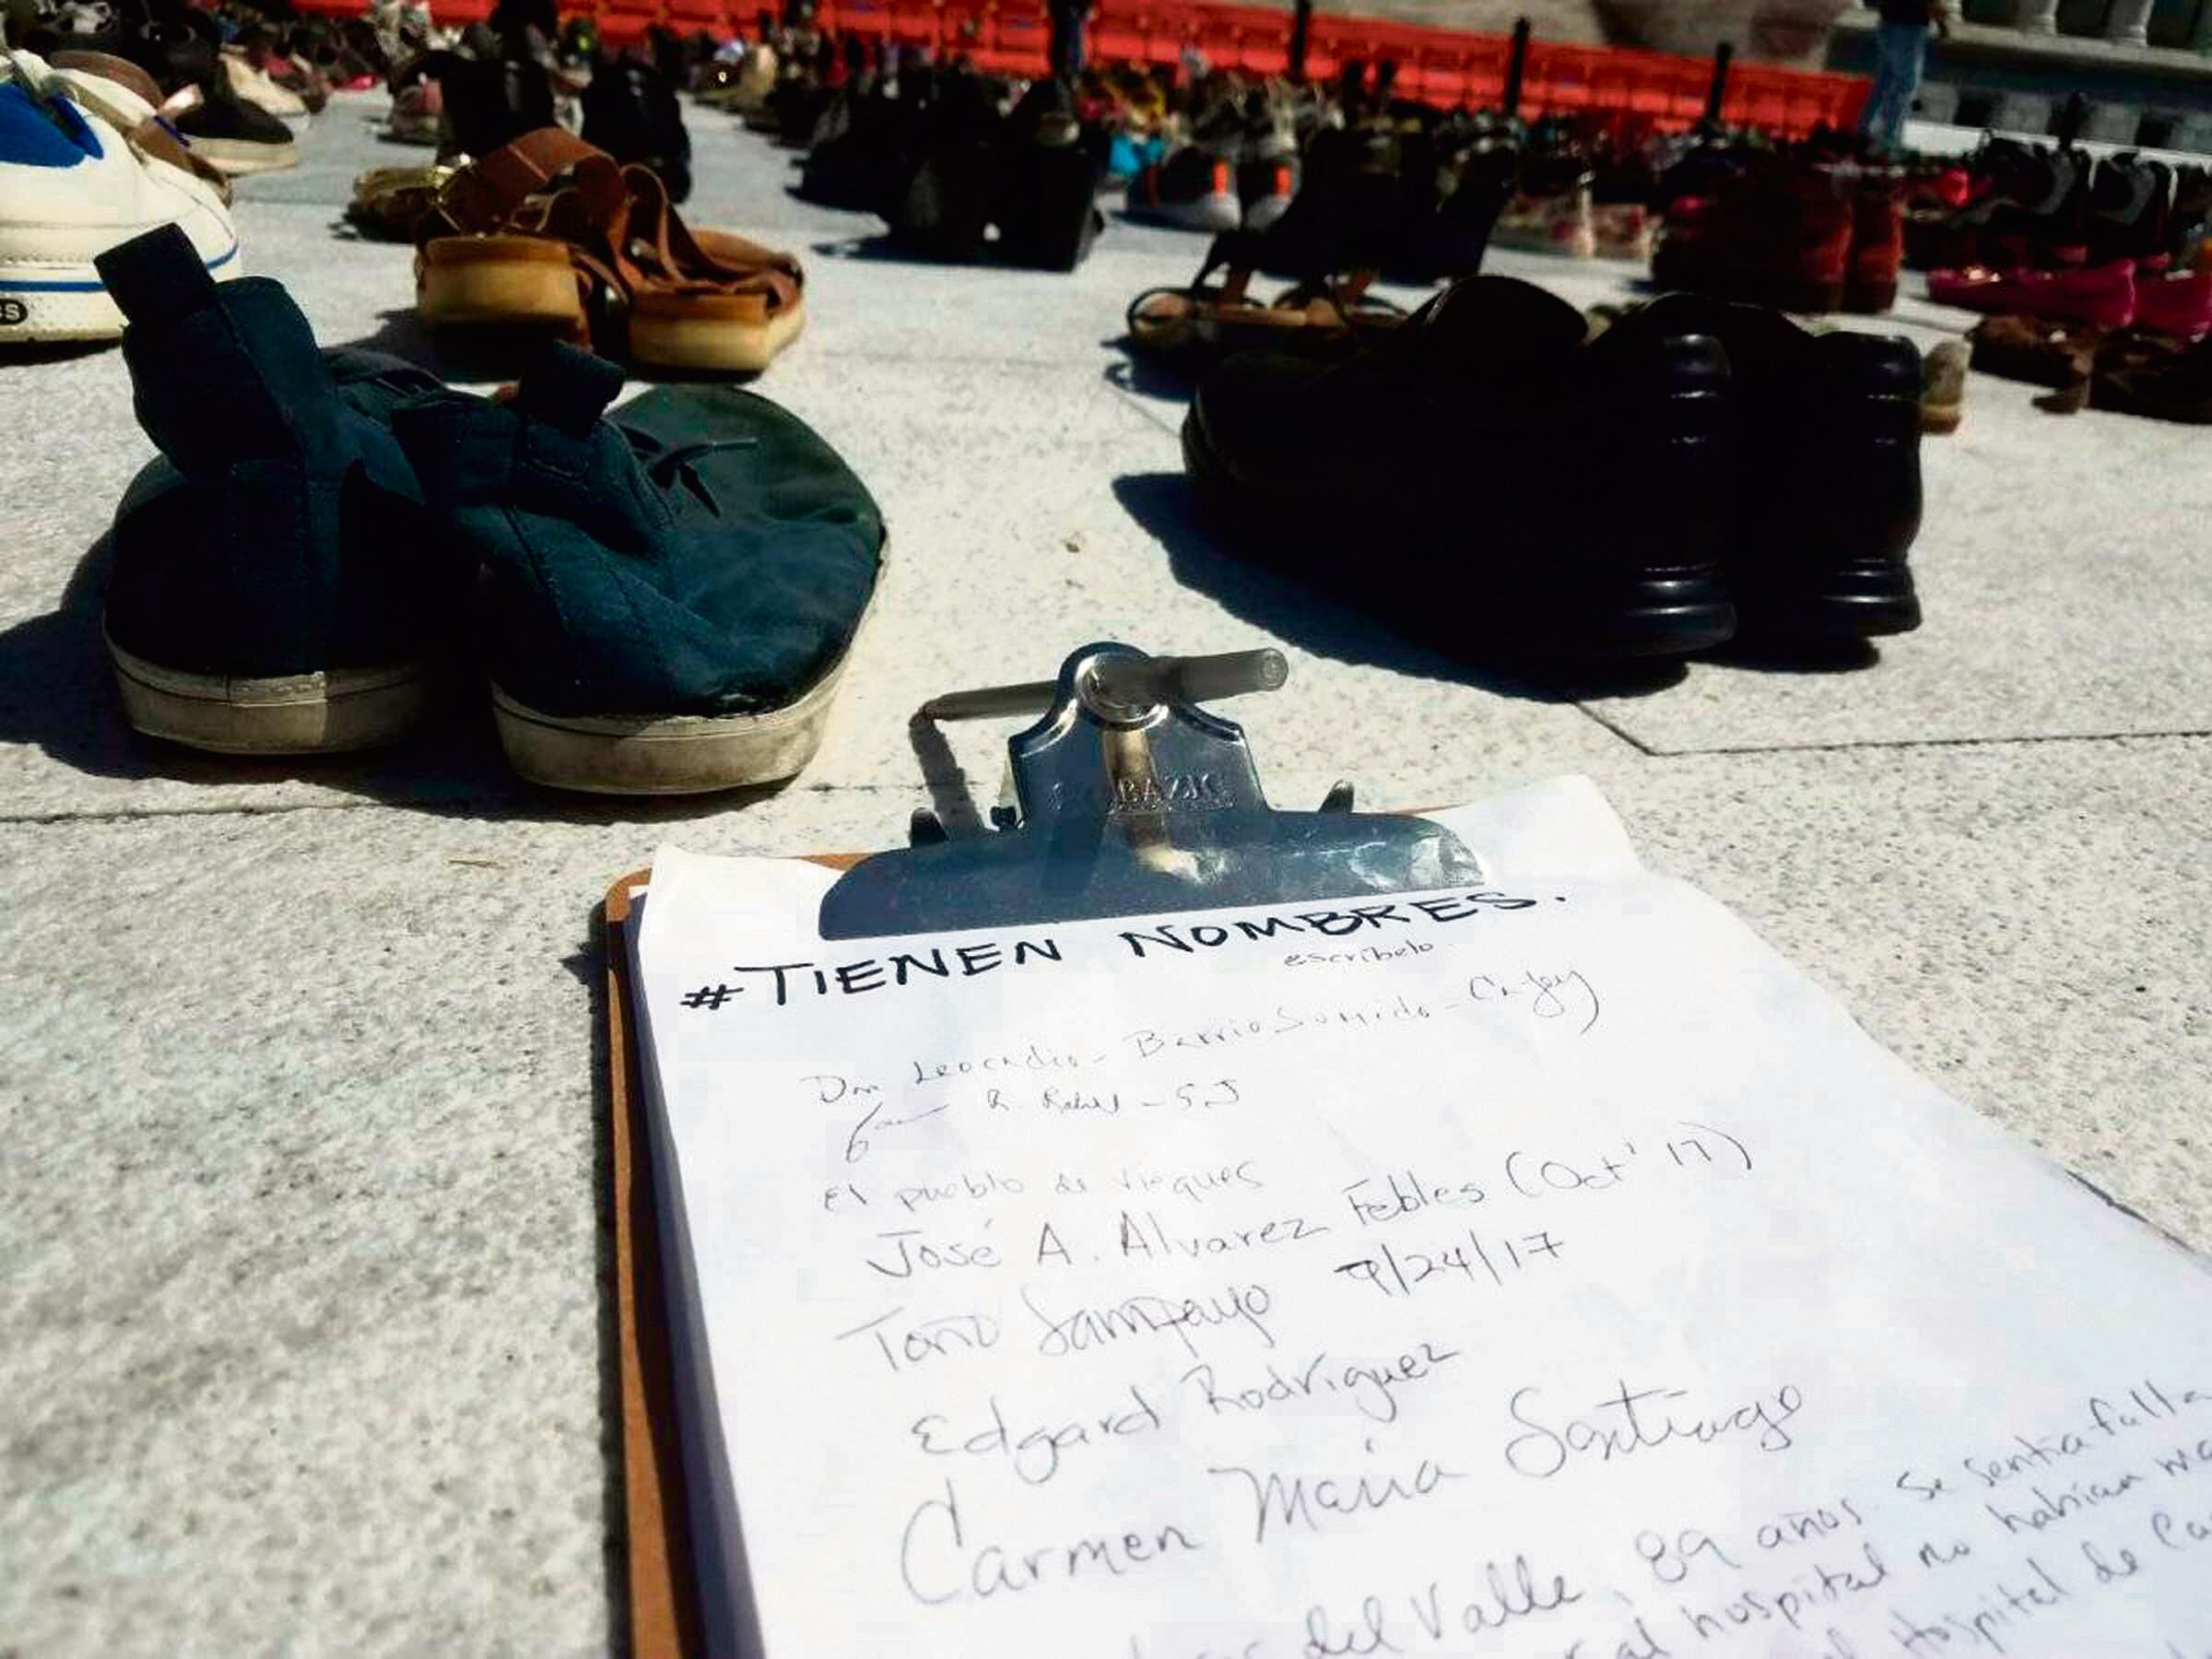 #TIENEN NOMBRES.
escríbelo
Don Leocadio - Barrio Sumido - Cayey
El pueblo de Vieques
José A. Alvarez Febles (Oct' 17)
Toño Sampayo 9/24/17
Edgard Rodríguez
Carmen María Santiago
del Valle, 89 años. Se sentía
al hospital no habían
Hospital de